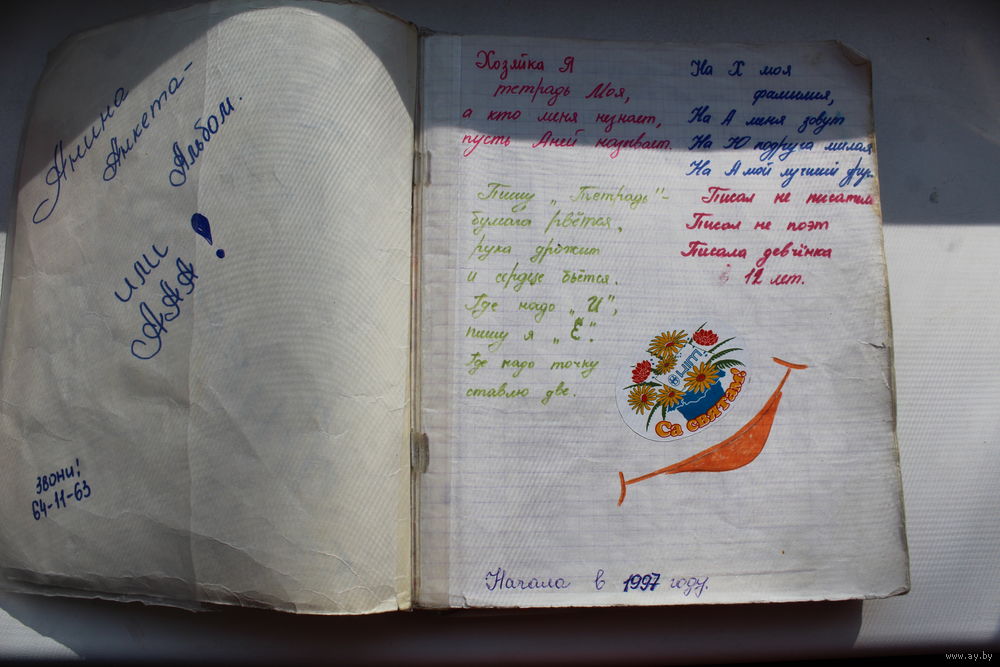 Анина
Анкета-
Альбом.
или
ААА!
звони!
64-11-63
Хозяйка Я
тетрадь Моя,
а кто меня незнает,
пусть Аней называет.
Пишу „Тетрадь"-
бумага рвётся,
рука дрожит
и сердце бьётся.
Где надо „И",
пишу я „Е".
Где надо точку
ставлю две.
На Х моя
фамилия,
На А меня зовут
На Ю подруга милая
На А мой лучший друг
Писал не писатель
Писал не поэт
Писала девчёнка
в 12 лет.
Са святам!
Начала в 1997 году.
www.ay.by